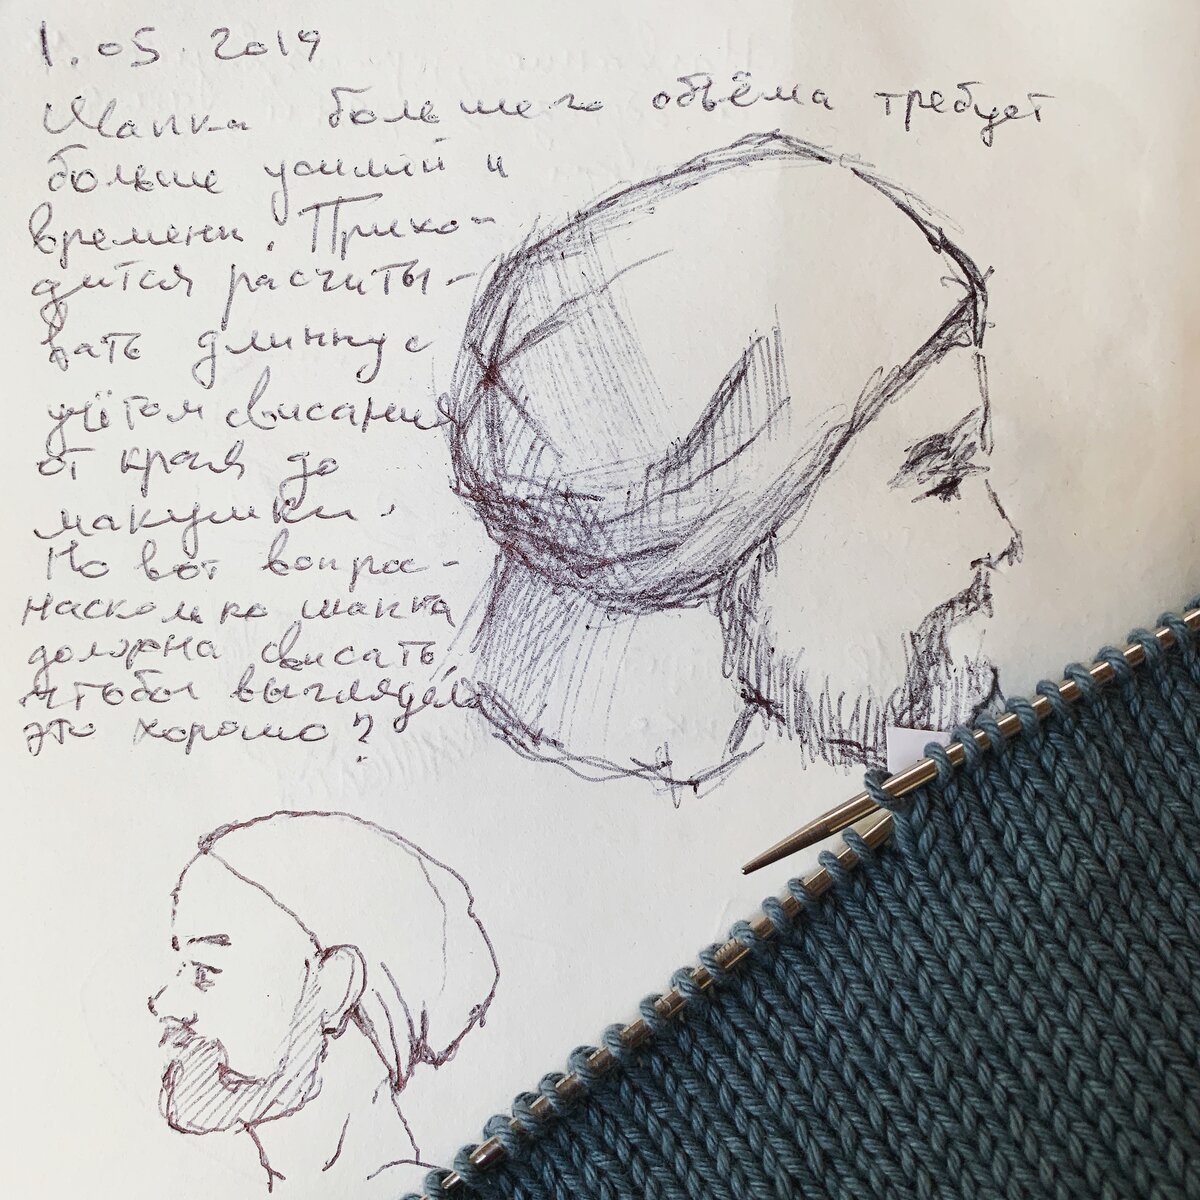 1.05.2019
Шапка большего объёма требует
больше усилий и
времени. Прихо-
дится расчиты-
вать длинну с
учётом свисания
от края до
макушки.
Но вот вопрос-
насколько шапка
должна свисать
чтобы выглядело
это хорошо?